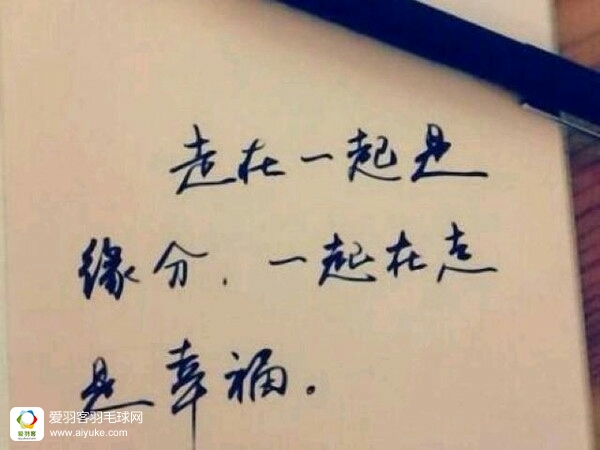 走在一起是
缘分，一起在走
是幸福。
爱羽客羽毛球网
www.aiyuke.com
爱羽客